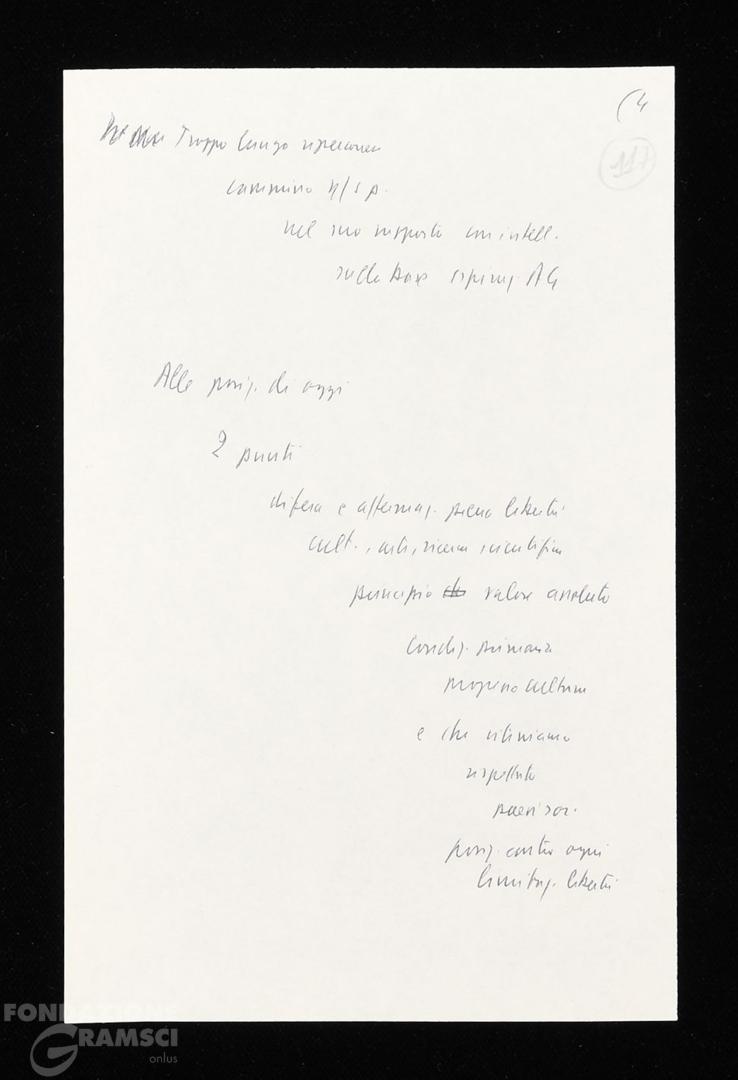 (4
117
Troppo lungo ripercorrere
cammino n/s p.
nel suo rapporto con intell.
sulla base ispiraz. AG
Alle posiz. di oggi
2 punti
difesa e affermaz. piena libertà
cult., arti, ricerca scientifica
principio valore assoluto
condiz. primaria
progresso cultura
e che riteniamo
rispettato
paesi soc.
posiz. contro ogni
limitaz. libertà
FONDAZIONE
GRAMSCI
onlus